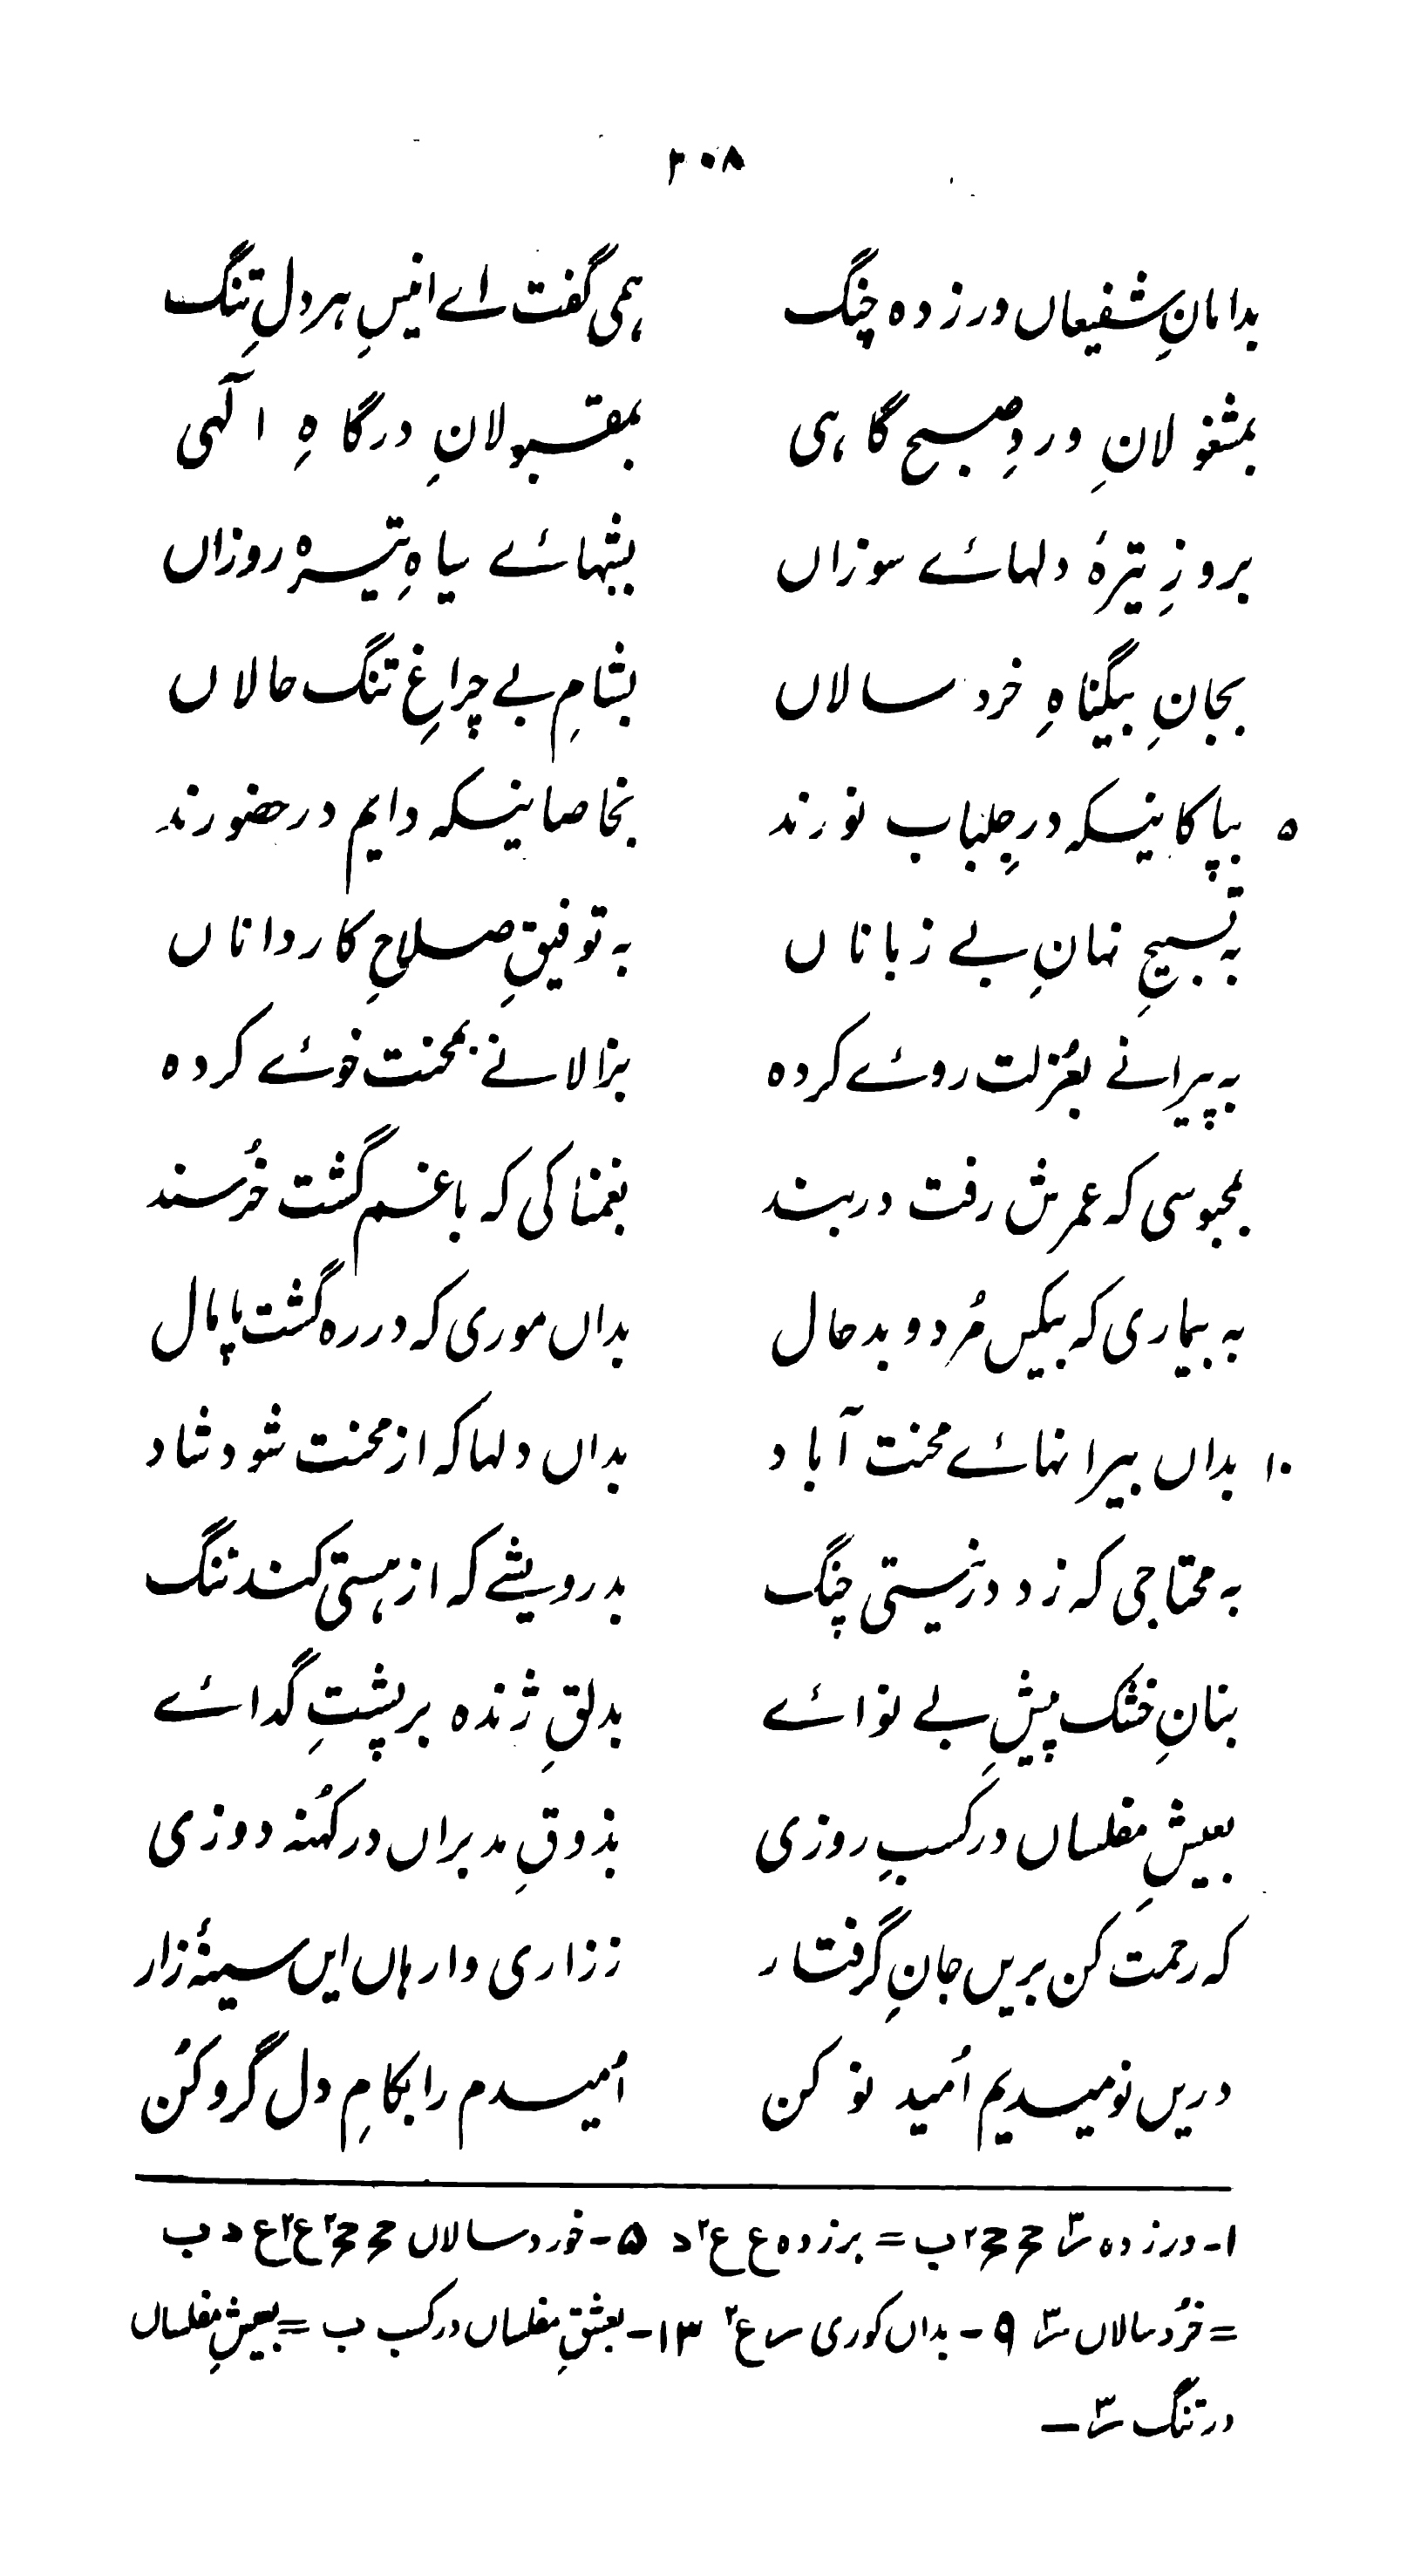 ۲۰۸
بدامانِ شفیعاں در زده چنگ    ہمی گفت اے انیسِ ہر دلِ تنگ
بمشغولانِ وردِ صبح گاہی    بمقبولانِ درگاہِ الٓہی
بروزِ تیرۂ دلہائے سوزاں    بشبہائے سیاہِ تیرہ روزاں
بجانِ بیگناہِ خرد سالاں    بشامِ بے چراغِ تنگ حالاں
۵ بپاکانیکہ در جِلباب نورند    بخاصانیکہ دایم در حضورند
بہ تسبیحِ نہانِ بے زباناں    بہ توفیقِ صلاحِ کارداناں
بہ پیرانے بعُزلت روئے کردہ    بزالانے بمحنت خوئے کردہ
بمحبوسی کہ عمرش رفت در بند    بغمناکی کہ با غم گشت خُرسند
بہ بیماری کہ بیکس مُرد و بد حال    بداں موری کہ در رہ گشت پامال
۱۰ بداں بیرانہائے محنت آباد    بداں دلہا کہ از محنت شود شاد
بہ محتاجی کہ زد در نیستی چنگ    بدرویشے کہ از ہستی کند ننگ
بنانِ خشک پیشِ بے نوائے    بدلقِ ژندہ بر پشتِ گدائے
بعیشِ مفلساں در کسبِ روزی    بذوقِ مدبراں در کہُنہ دوزی
کہ رحمت کن بریں جانِ گرفتار    ز زاری وارہاں ایں سینۂ زار
دریں نومیدیم اُمید نو کن    اُمیدم را بکامِ دل گرو کُن
۱- در زدہ س۳ ح ح۲ ب = بر زدہ ع ع۲ د ۵- خورد سالاں ح ح۲ ع۲ ع د ب
= خُرد سالاں س۳ ۹- بداں کوری س ع۲ ۱۳- بعشقِ مفلساں در کسب ب = بعیشِ مفلساں
در تنگ س۳ –